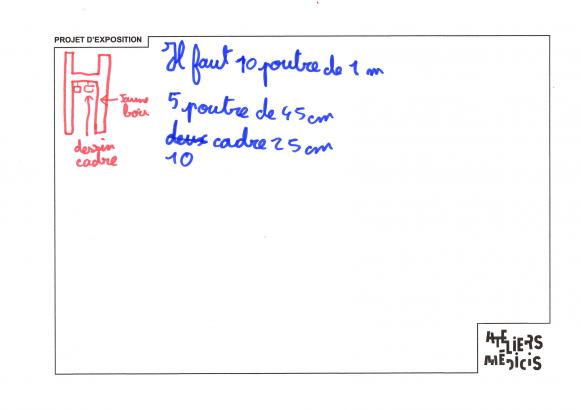 PROJET D'EXPOSITION
Il faut 10 poutre de 1 m
5 poutre de 45 cm
deux cadre 25 cm
10
bois
dessin
cadre
ATELIERS
MÉDICIS